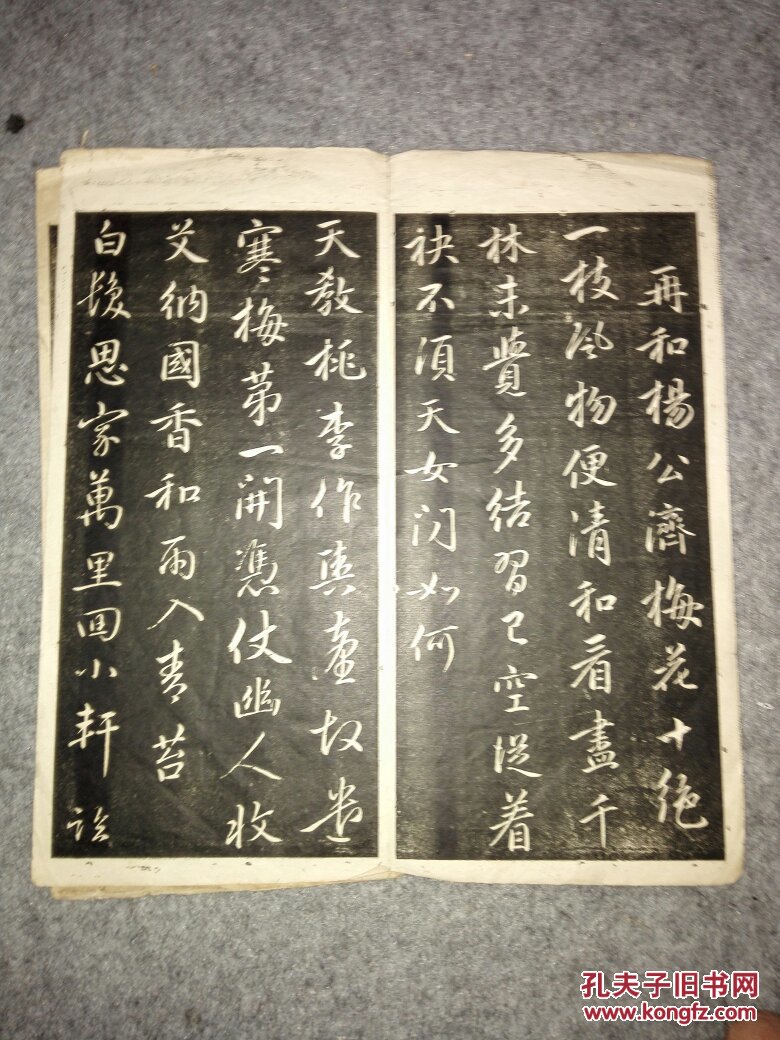 再和楊公濟梅花十絶
一枝風物便清和看盡千
林未覺多結習已空從着
袂不須天女問如何
天教桃李作輿臺故遣
寒梅第一開憑仗幽人收
艾納國香和雨入青苔
白髮思家萬里回小軒 詮
孔夫子旧书网
www.kongfz.com